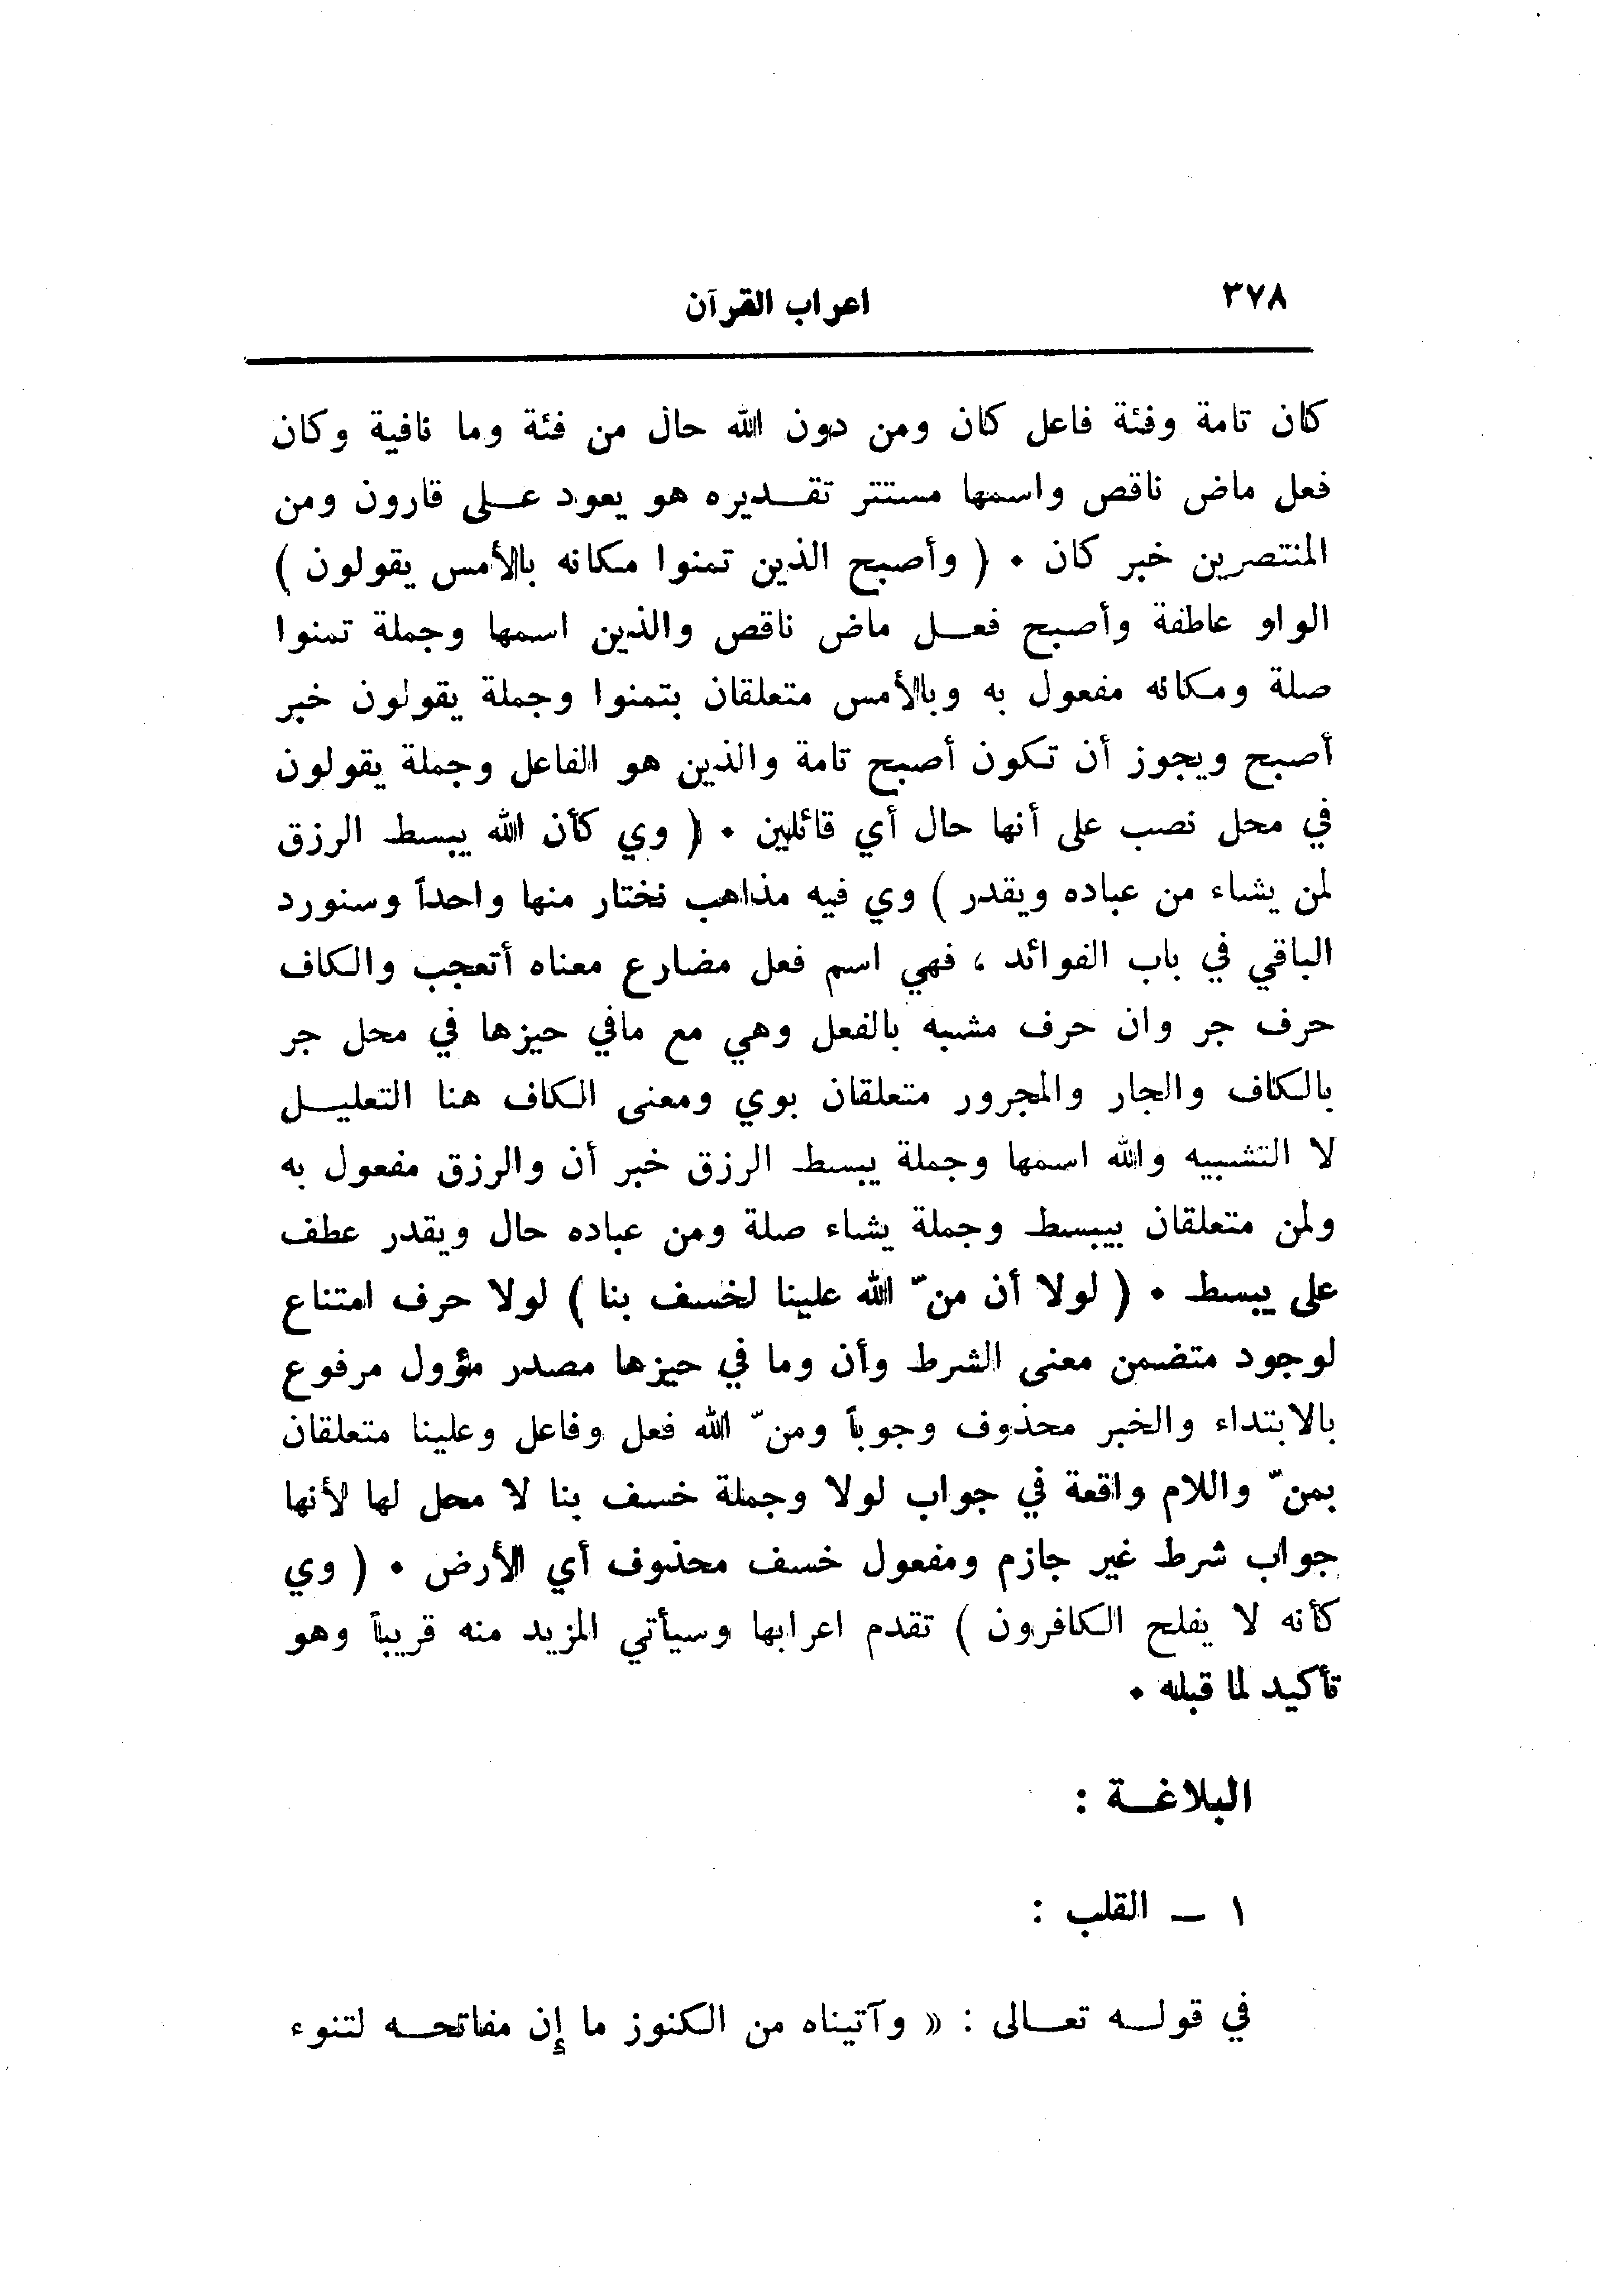 ٣٧٨
اعراب القرآن
كان تامة وفئة فاعل كان ومن دون الله حال من فئة وما نافية وكان
فعل ماض ناقص واسمها مستتر تقديره هو يعود على قارون ومن
المنتصرين خبر كان . ( وأصبح الذين تمنوا مكانه بالأمس يقولون )
الواو عاطفة وأصبح فعل ماض ناقص والذين اسمها وجملة تمنوا
صلة ومكانه مفعول به وبالأمس متعلقان بتمنوا وجملة يقولون خبر
أصبح ويجوز أن تكون أصبح تامة والذين هو الفاعل وجملة يقولون
في محل نصب على أنها حال أي قائلين . ( وي كأن الله يبسط الرزق
لمن يشاء من عباده ويقدر ) وي فيه مذاهب نختار منها واحداً وسنورد
الباقي في باب الفوائد ، فهي اسم فعل مضارع معناه أتعجب والكاف
حرف جر وان حرف مشبه بالفعل وهي مع مافي حيزها في محل جر
بالكاف والجار والمجرور متعلقان بوي ومعنى الكاف هنا التعليل
لا التشبيه والله اسمها وجملة يبسط الرزق خبر أن والرزق مفعول به
ولمن متعلقان بيبسط وجملة يشاء صلة ومن عباده حال ويقدر عطف
على يبسط . ( لولا أن منّ الله علينا لخسف بنا ) لولا حرف امتناع
لوجود متضمن معنى الشرط وأن وما في حيزها مصدر مؤول مرفوع
بالابتداء والخبر محذوف وجوباً ومنّ الله فعل وفاعل وعلينا متعلقان
بمنّ واللام واقعة في جواب لولا وجملة خسف بنا لا محل لها لأنها
جواب شرط غير جازم ومفعول خسف محذوف أي الأرض . ( وي
كأنه لا يفلح الكافرون ) تقدم اعرابها وسيأتي المزيد منه قريباً وهو
تأكيد لما قبله .
البلاغة :
١ – القلب :
في قوله تعالى : « وآتيناه من الكنوز ما إن مفاتحه لتنوء